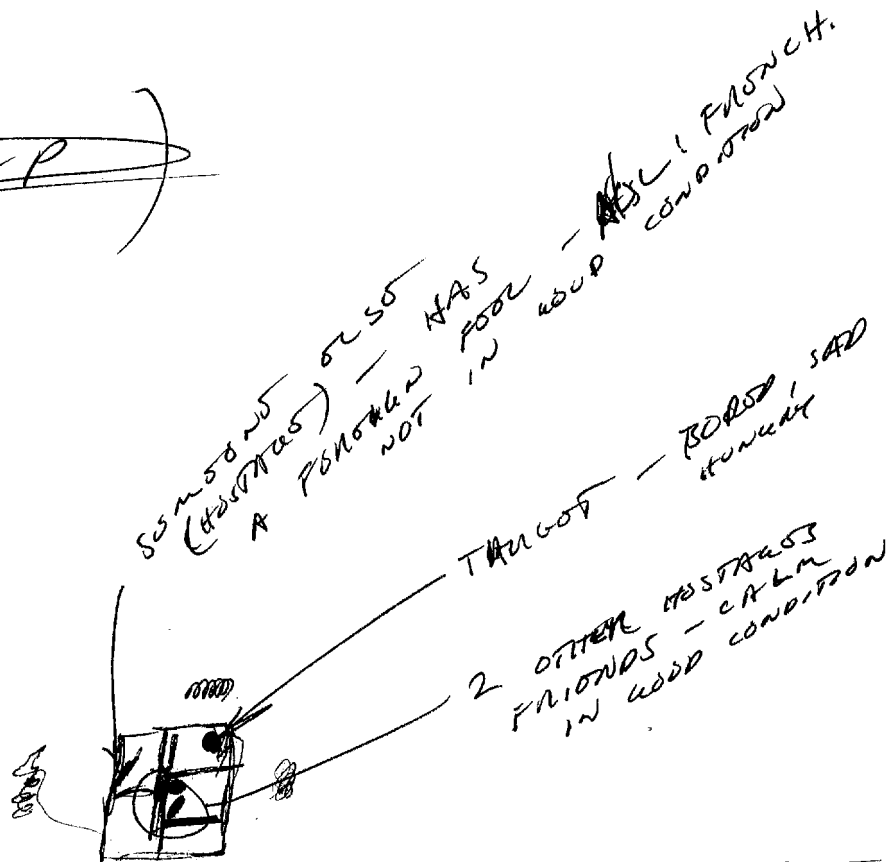 P
SOMEONE ELSE
(HOSTAGE) - HAS
A FOREIGN FEEL - FRENCH.
NOT IN GOOD CONDITION
TARGET - BORED, SAD
HUNGRY
2 OTHER HOSTAGES
FRIENDS - CALM
IN GOOD CONDITION